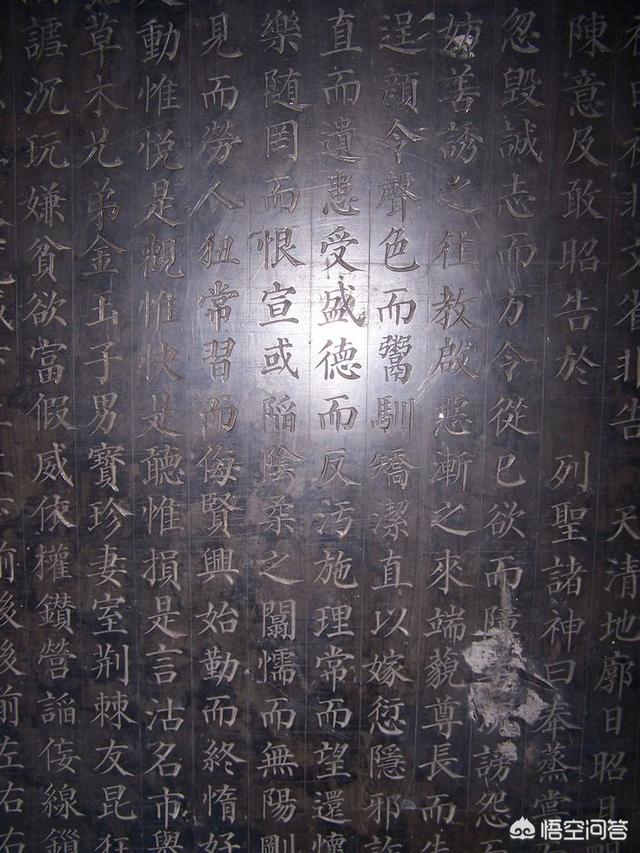 非文省非告 天清地廓日昭月
陳意及敢昭告於 列聖諸神曰奉蒸嘗
忽毀誠志而方令從已欲而障謗怨
善誘之徑教啟惡漸之來端藐尊長而
逞顏令聲色而鬻馴矯潔直以嫁愆隱邪
直而遺患受盛德而反污施理常而望還懷
樂随罔而恨宣或陷陰柔之闒懦而無陽剛
見而勞人狃常習而侮賢興始勤而終惰好
動惟悅是觀惟快是聽惟損是言沽名市與
草木兄弟金玉子男寶珍妻室荆棘友昆狂
謔沉玩嫌貧欲富假威依權鑚營謟佞線鎖
前後後前左右右
悟空问答